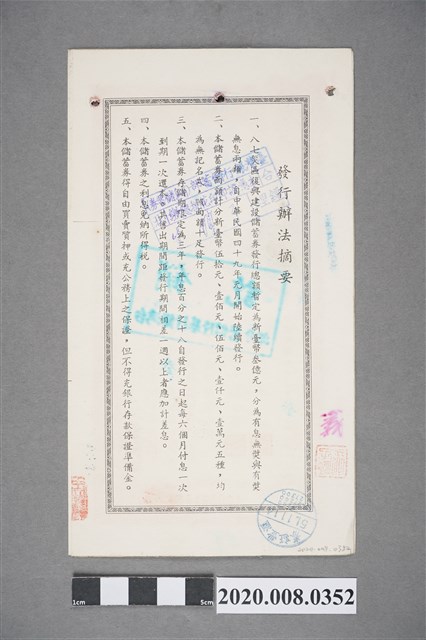 發行辦法摘要
一、八七灾區復興建設儲蓄券發行總額暫定為新臺幣叁億元，分為有息無獎與有獎
無息兩種，自中華民國四十九年元月開始陸續發行。
二、本儲蓄券面額計分新臺幣伍拾元、壹佰元、伍佰元、壹仟元、壹萬元五種，均
為無記名式，照面額十足發行。
三、本儲蓄券存儲期限定為三年，年息百分之十八自發行之日起每六個月付息一次
到期一次還本。其售出期間距發行期間相差一週以上者應加計差息。
四、本儲蓄券之利息免納所得稅。
五、本儲蓄券得自由買賣質押或充公務上之保證，但不得充銀行存款保證準備金。
義
2020.008.0352
1cm
5cm
2020.008.0352